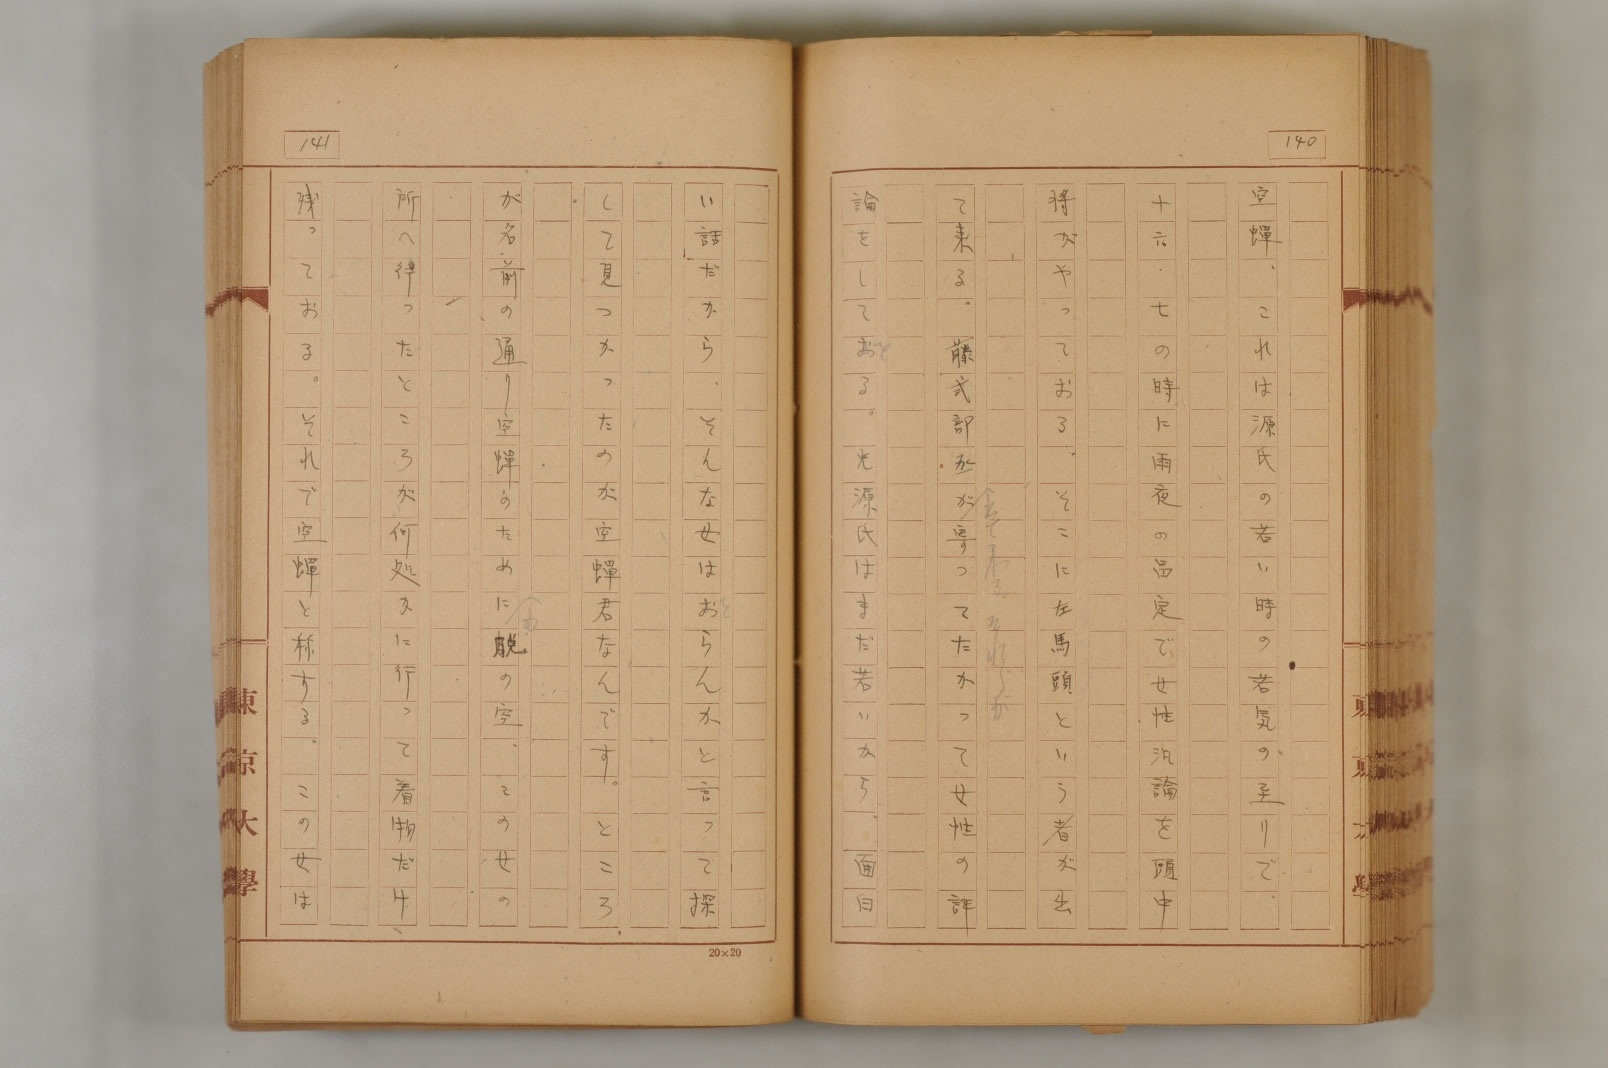 140
空蟬、これは源氏の若い時の若気の至りで、
十六・七の時に雨夜の品定で女性汎論を頭中
将がやっておる。そこに左馬頭という者が出
て来る。藤式部丞が寄ってたかって女性の評
論をしておる。光源氏はまだ若いから、面白
141
い話だから、そんな女はおらんかと言って探
して見つかったのが空蟬君なんです。ところ
が名前の通り空蟬のために脱の空、その女の
所へ行ったところが何処かに行って着物だけ
残っておる。それで空蟬と称する。この女は
20×20
東京大學